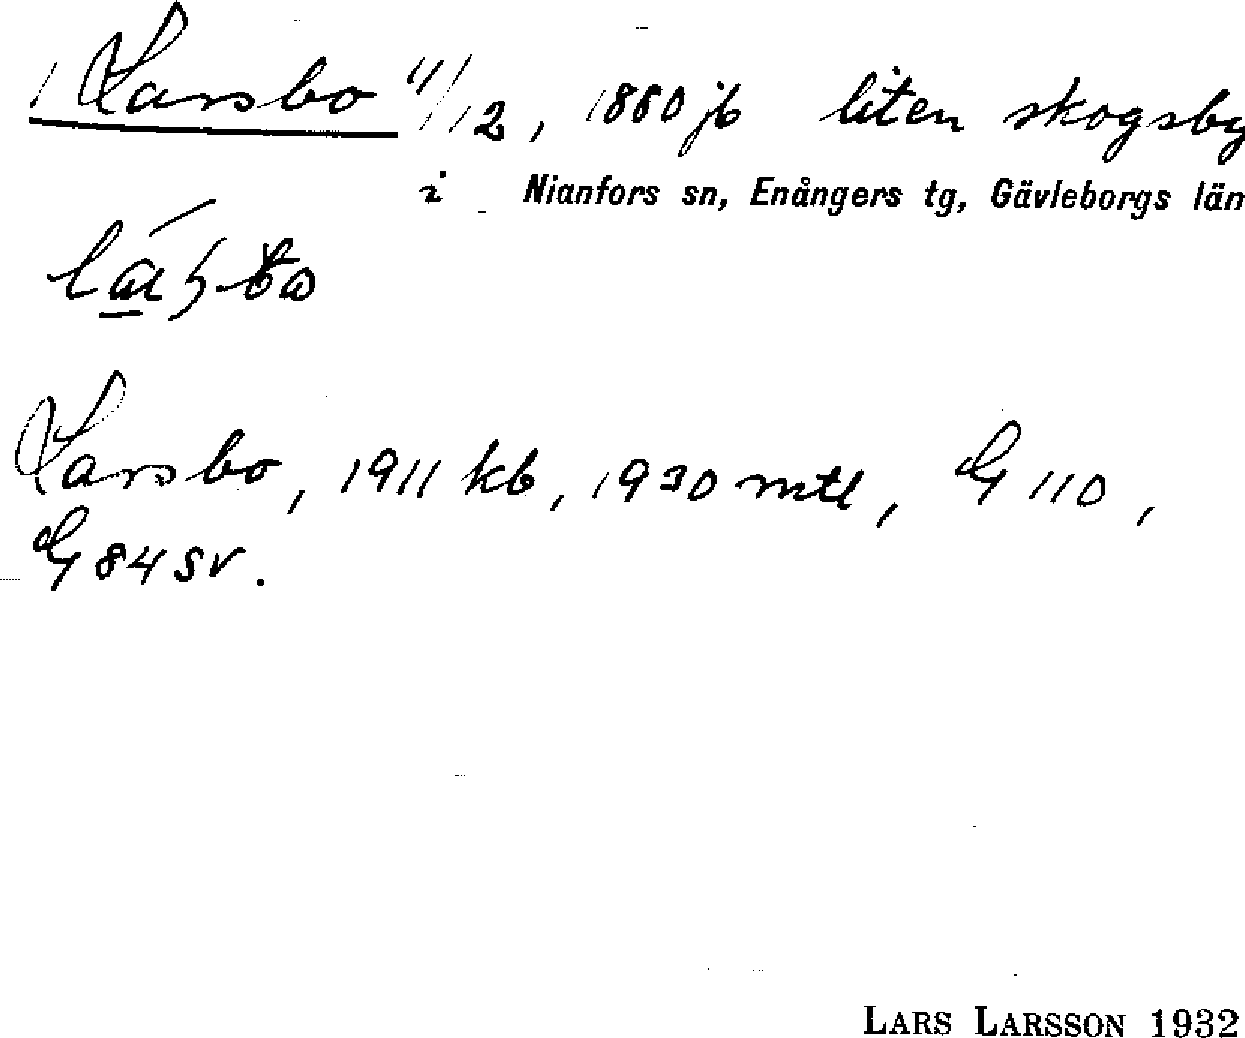 Larsbo 11/12, 1880 jb liten skogsby
i Nianfors sn, Enångers tg, Gävleborgs län
Larsbo, 1911 kb, 1930 mtl, G 110,
G 84 SV.
LARS LARSSON 1932